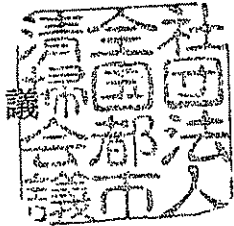 社団法人
全国都市
清掃会議
議